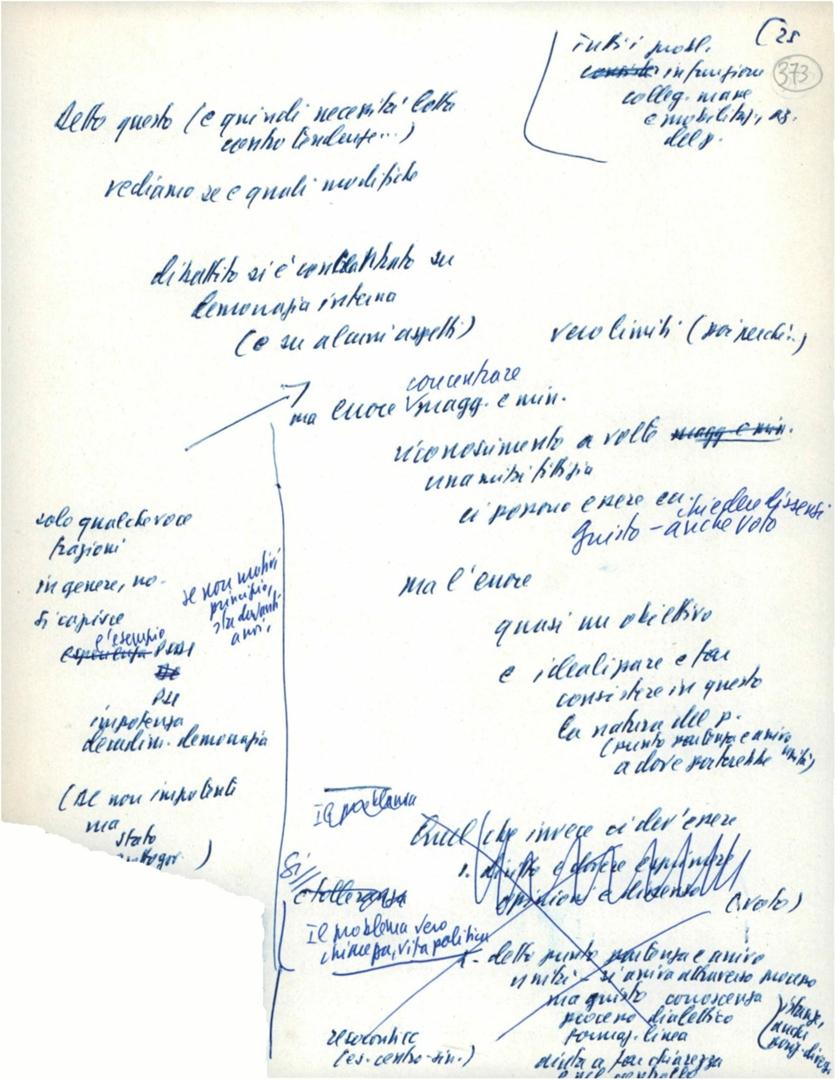 (25
373
tutti i probl.
in funzione
colleg. mane
e mobilitaz., as.
del p.
Detto questo (e quindi necessità lotta
contro tendenze...)
vediamo se e quali modifiche
dibattito si è concentrato su
democrazia interna
(e su alcuni aspetti)
vero limiti (poi perché..)
concentrare
ma errore magg. e min.
riconoscimento a volte magg. e min.
una
ci possono essere
chiedere dissensi
giusto - anche voto
solo qualche voce
frazioni
in genere, no.
Si capisce
l'esempio
esperienza PSDI
PSI
impotenza
decadim. democrazia
se non motivi
principio,
(DC non impotenti
ma
stato
)
ma l'errore
quasi un obiettivo
e idealizzare e far
consistere in questo
la natura del p.
(punto partenza e arrivo
unità)
a dove porterebbe
Il problema
Quel che invece ci dev'essere
1. diritto e dovere esprimere
opinioni e dissenso
(voto)
Sì
e tolleranza
Il problema vero
chiarezza, vita politica
1- detto punto partenza e arrivo
unità - si arriva attraverso processo
ma questo conoscenza
processo dialettico
formaz. linea
aiuta a far chiarezza
e nel controllo
istanze,
anche
resoconti cc
(es. centro-sin.)